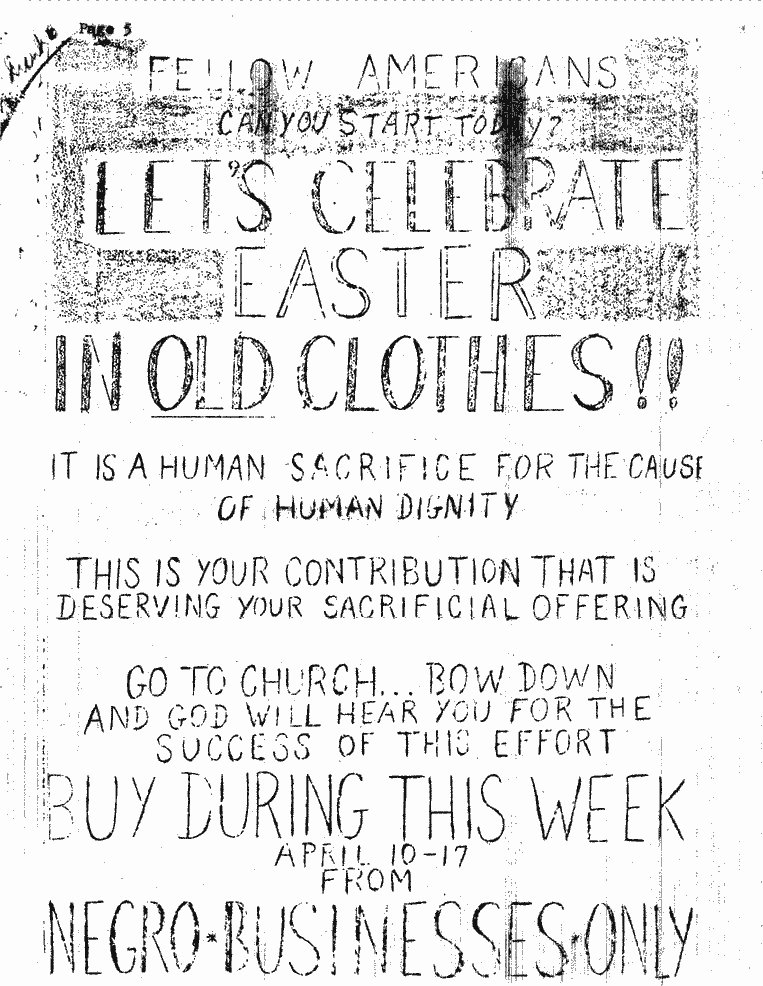 Page 5
FELLOW AMERICANS
CAN YOU START TODAY?
LET'S CELEBRATE
EASTER
IN OLD CLOTHES!!
IT IS A HUMAN SACRIFICE FOR THE CAUSE
OF HUMAN DIGNITY
THIS IS YOUR CONTRIBUTION THAT IS
DESERVING YOUR SACRIFICIAL OFFERING
GO TO CHURCH... BOW DOWN
AND GOD WILL HEAR YOU FOR THE
SUCCESS OF THIS EFFORT
BUY DURING THIS WEEK
APRIL 10-17
FROM
NEGRO*BUSINESSES*ONLY